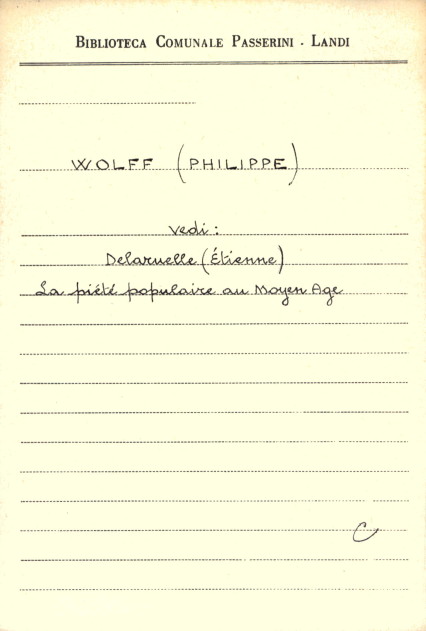 BIBLIOTECA COMUNALE PASSERINI - LANDI
WOLFF (PHILIPPE)
vedi:
Delaruelle (Étienne)
La piété populaire au Moyen Age
C